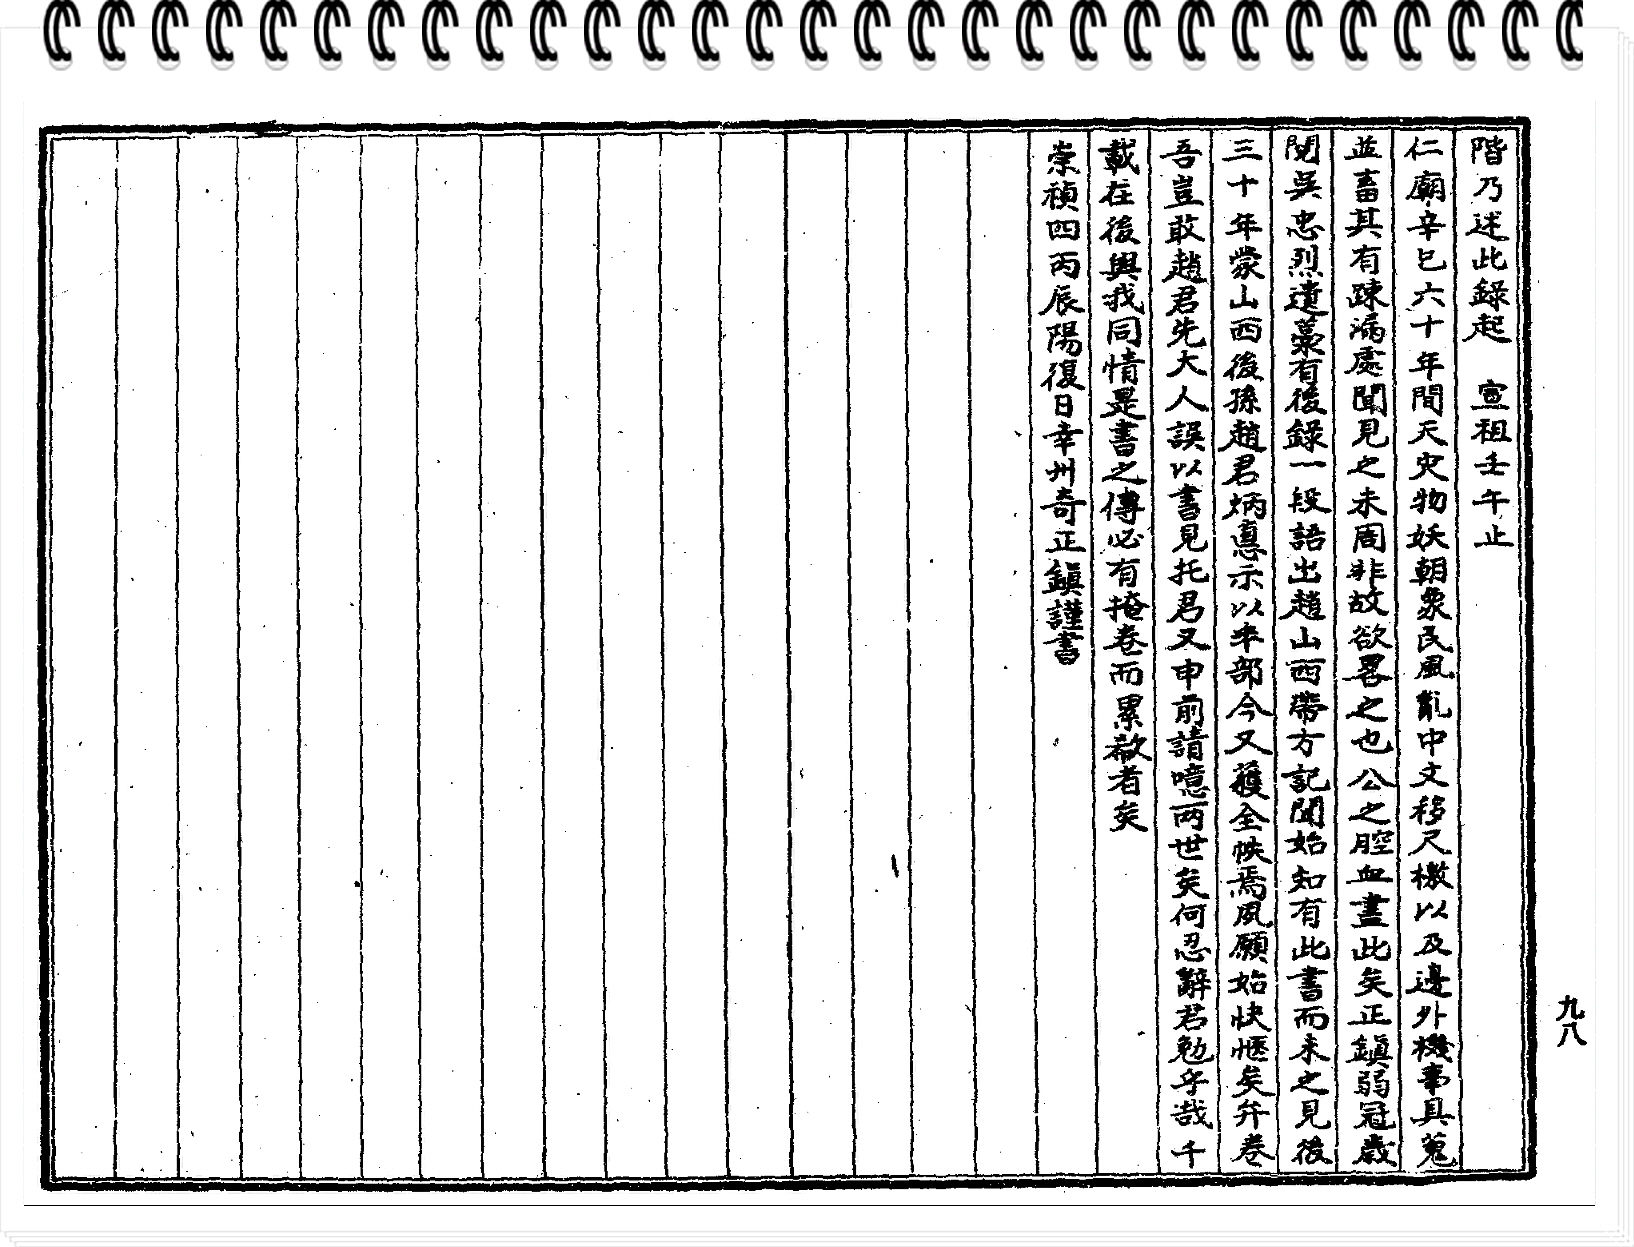 階乃述此錄起　宣祖壬午止
仁廟辛巳六十年間天灾物妖朝象民風亂中文移尺檄以及邊外機事具蒐
並畜其有踈漏處聞見之未周非故欲畧之也公之腔血盡此矣正鎭弱冠歲
閱吳忠烈遺藁有後錄一段語出趙山西帶方記聞始知有此書而未之見後
三十年蒙山西後孫趙君炳悳示以半部今又獲全帙焉夙願始快愜矣弁卷
吾豈敢趙君先大人誤以書見托君又申前請噫兩世矣何忍辭君勉乎哉千
載在後與我同情是書之傳必有掩卷而累欷者矣
崇禎四丙辰陽復日幸州奇正鎭謹書
九八